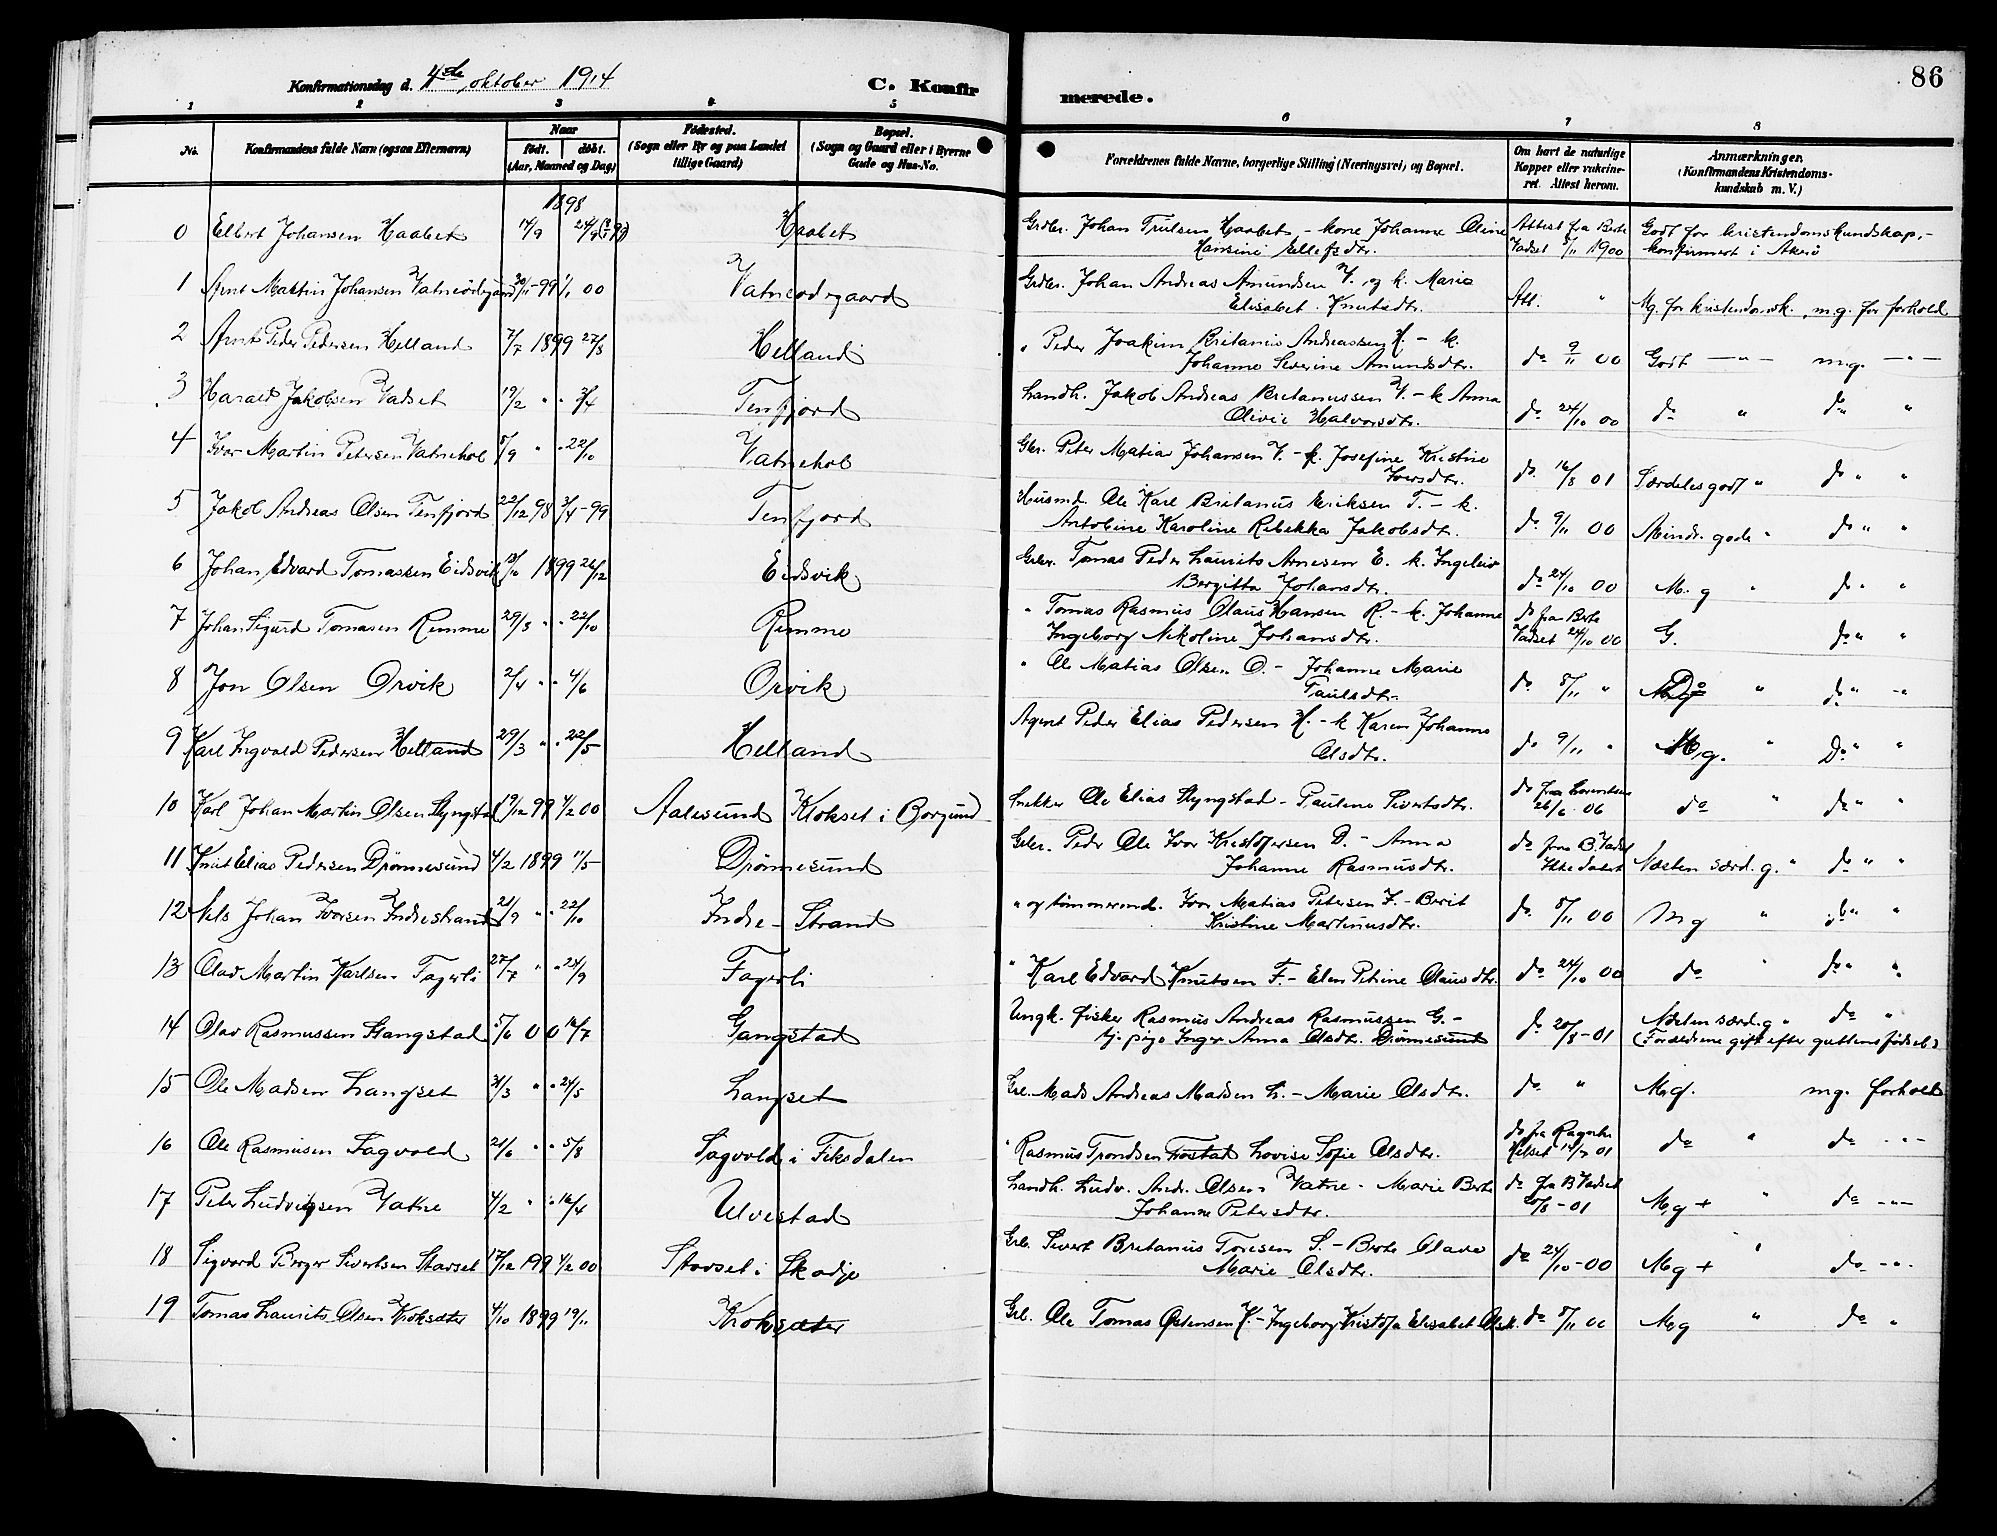 86
Konfirmationsdag d. 4de oktober 1914
C. Konfirmerede.
1 2 3 4 5 6 7 8
No. Konfirmandens fulde Navn (ogsaa Efternavn) Naar født. døbt. (Aar, Maaned og Dag) Fødested. (Sogn eller By og paa Landet tillige Gaard) Bopæl. (Sogn og Gaard eller i Byerne Gade og Hus-No. Forældrenes fulde Navne, borgerlige Stilling (Næringsvei) og Bopæl. Om havt de naturlige Kopper eller vakcineret. Attest herom. Anmærkninger. (Konfirmandens Kristendomskundskab m. V.)
1898
0 Elbert Johansen Haabet 14/9 Haabet Grdbr. Johan Trulsen Haabet - kone Johanne Oline Attest fra Berte Godt for kristendomskundskap,-
Hansine Ellefsdtr. Vadset 5/11 1900 konfirmert i Akerø
1 Arnt Martin Johansen Vatneødegaard 30/11-99 1/1 00 Vatneødegaard Grdbr. Johan Andreas Amundsen V. og k. Marie
Elisabet Knutsdtr. Att. " Mg. for kristendomsk. m.g. for forhold
2 Arnt Peder Pedersen Helland 7/7 1899 27/8 Helland " Peder Joakim Britanius Andreassen H. - k.
Johanne Severine Amundsdtr. do 9/11 00 Godt - " - m.g. - " -
3 Harald Jakobsen Vadset 19/2 " " 3/4 Tenfjord Landh. Jakob Andreas Britanussen V. - k Anna
Olivie Halvorsdtr. do 24/10 00 do " do "
4 Ivar Martin Petersen Vatnehol 5/9 " " 22/10 Vatnehol Gbr. Peter Matias Johansen V. - k. Josefine Kristine
Iversdtr. do. 16/8 01 Særdeles godt " do " "
5 Jakob Andreas Olsen Tenfjord 22/12 98 3/4-99 Tenfjord Husmd. Ole Karl Britanus Eriksen T. - k.
Antobine Karoline Rebekka Jakobsdt. do 9/11 00 Mindr. gode " do " "
6 Johan Edvard Tomassen Eidsvik 1899 26/12 Eidsvik Grbr. Tomas Peder Laurits Arnesen E. k. Ingeleiv
Bergitte Johansdtr. do 24/10 00 M.g " do " "
7 Johan Sigurd Tomasen Remme 29/8 " " 22/10 Remme " Tomas Rasmus Olaus Hansen R. - k. Johanne do fra Berte
Ingeborg Nikoline Johansdtr. Vadset 24/10 00 G. do " "
8 Jon Olsen Orvik 2/4 " " 4/6 Orvik " Ole Matias Olsen O. - Johanne Marie
Paulsdtr. do 5/11 " Do " do " "
9 Karl Ingvald Pedersen Helland 29/3 " " 22/5 Helland Agent Peder Elias Pedersen H. - k Karen Johanne
Olsdtr. do 9/11 " M.g. " Do " "
10 Karl Johan Martin Olsen Slyngstad 19/12 99 4/2 00 Aalesund Klokset i Borgund Snekker Ole Elias Slyngstad - Pauline Sivertsdtr. do fra Lorentsen
26/6 06 do " do " "
11 Knut Elias Pedersen Drønnesund 4/2 1899 11/5 Drønnesund Grbr. Peder Ole Ivar Kristofersen D. - Anna do fra B. Vadset
Johanne Rasmusdtr. Ikke datert Næsten særd. g. " do " "
12 Nils Johan Iversen Indrestrand 21/9 " " 22/10 Indre - Strand " og tømmermd. Iver Matias Petersen I. - Berit
Kristine Martinusdtr. do. 5/11 00 Mg " do " "
13 Olav Martin Karlsen Fagerli 27/7 " " 24/9 Fagerli " Karl Edvard Knutsen F. - Elen Petrine Olausdtr. do 24/10 00 do " do " "
14 Olav Rasmussen Gangstad 5/6 00 14/7 Gangstad Ungk. fisker Rasmus Andreas Rasmussen G. - Næsten særd. g " do "
tj. pige Inger Anna Olsdtr. Drønnesund do 20/8-01 (Forældrene gift efter guttens fødsel)
15 Ole Madsen Langset 31/3 " " 21/5 Langset Grl. Mads Andreas Madsen L. - Marie Olsdtr. do. " M.g. mg. forhold
16 Ole Rasmusen Sagvold 21/6 " " 5/8 Sagvold i Fiksdalen " Rasmus Trondsen Frostad Lovise Sofie Olsdtr. do fra Ragnhi
Kelset 14/7 01 do " do - " -
17 Peter Ludvigsen Vatne 4/2 " " 16/4 Ulvestad Landh. Ludv. Andr. Olsen Vatne - Marie Berte do fra B Vadset
Johanne Petersdtr. 20/8-01 Mg + " do - " -
18 Sigvard Birger Sivertsen Stavset 17/12 199 4/2 00 Stavset i Skodje Grb. Sivert Britanius Toresen S. - Berte Olave
Marie Olsdtr. do 24/10-00 Mg + " do - " -
19 Tomas Laurits Olsen Kroksæter 4/10 1899 19/11 Kroksæter Grb. Ole Tomas Østensen K. - Ingeborg Kristofa Elisabet Olsdt. do 5/11 00 Mg " do "